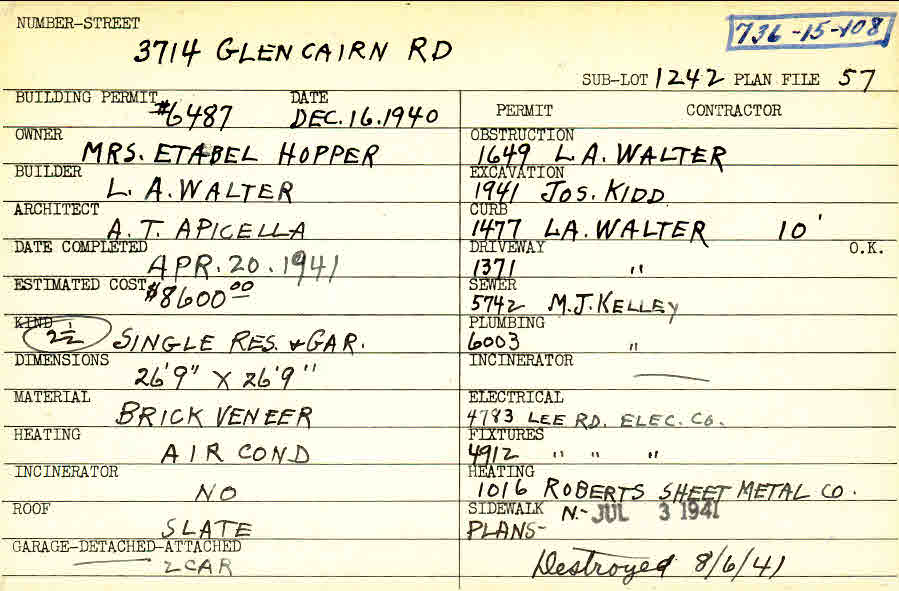 NUMBER-STREET
3714 GLENCAIRN RD
736-15-108
SUB-LOT 1242 PLAN FILE 57
BUILDING PERMIT #6487 DATE DEC. 16. 1940
OWNER
MRS. ETABEL HOPPER
BUILDER
L. A. WALTER
ARCHITECT
A. T. APICELLA
DATE COMPLETED
APR. 20. 1941
ESTIMATED COST $8600 00
KIND
2 1/2 SINGLE RES. & GAR.
DIMENSIONS
26'9" X 26'9"
MATERIAL
BRICK VENEER
HEATING
AIR COND
INCINERATOR
NO
ROOF
SLATE
GARAGE-DETACHED-ATTACHED
2 CAR
PERMIT CONTRACTOR
OBSTRUCTION
1649 L. A. WALTER
EXCAVATION
1941 JOS. KIDD
CURB
1477 L.A. WALTER 10'
DRIVEWAY O.K.
1371 "
SEWER
5742 M. J. KELLEY
PLUMBING
6003 "
INCINERATOR
ELECTRICAL
4783 LEE RD. ELEC. CO.
FIXTURES
4912 " " "
HEATING
1016 ROBERTS SHEET METAL CO.
SIDEWALK N.- JUL 3 1941
PLANS-
Destroyed 8/6/41